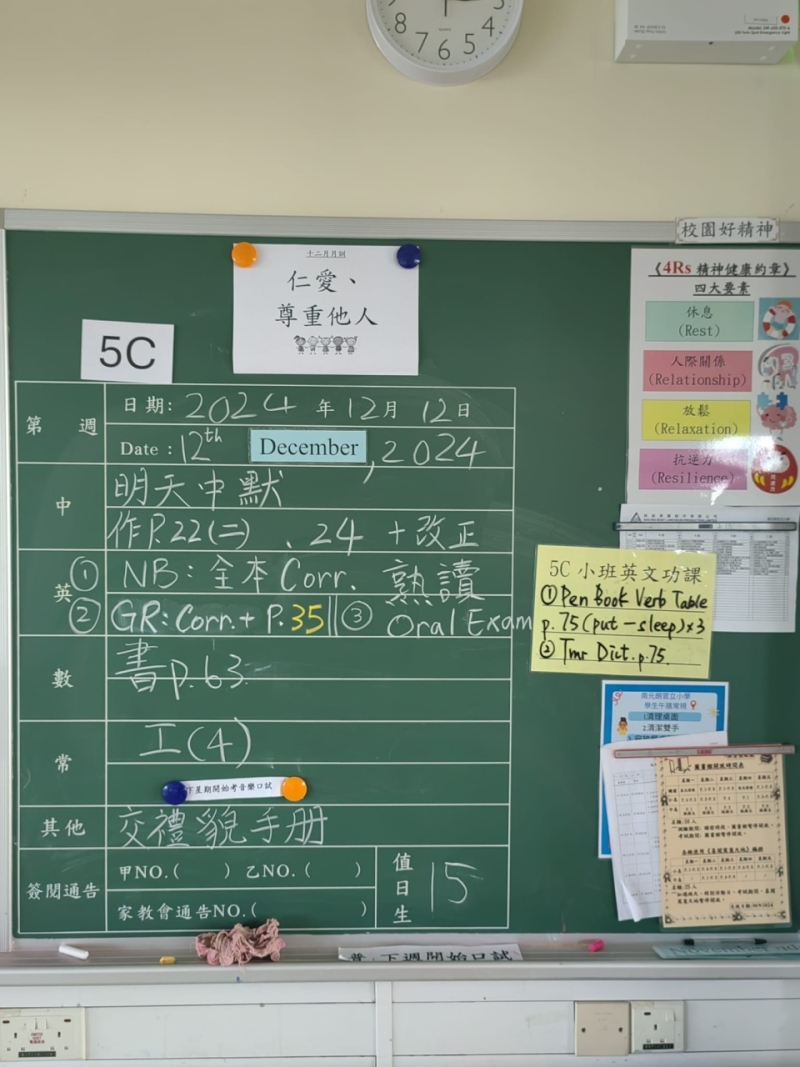 8 7 6 5 4 3
校園好精神
十二月月訓
仁愛、
尊重他人
5C
《4Rs 精神健康約章》
四大要素
休息
(Rest)
人際關係
(Relationship)
放鬆
(Relaxation)
抗逆力
(Resilience)
第 週
日期: 2024 年 12 月 12 日
Date : 12th December, 2024
中
明天中默
作P.22(二)、24 + 改正
英
① NB: 全本 Corr. 熟讀
② GR: Corr. + P.35 ③ Oral Exam
5C 小班英文功課
① Pen Book Verb Table
p.75 (put - sleep) x3
② Tmr Dict. p.75
數
書 p.63
常
工(4)
下星期開始考音樂口試
其他
交禮貌手册
簽閱通告
甲NO.( ) 乙NO.( )
家教會通告NO.( )
值日生
15
南元朗官立小學
學生午膳常規
1.清理桌面
2.清潔雙手
下週開始口試